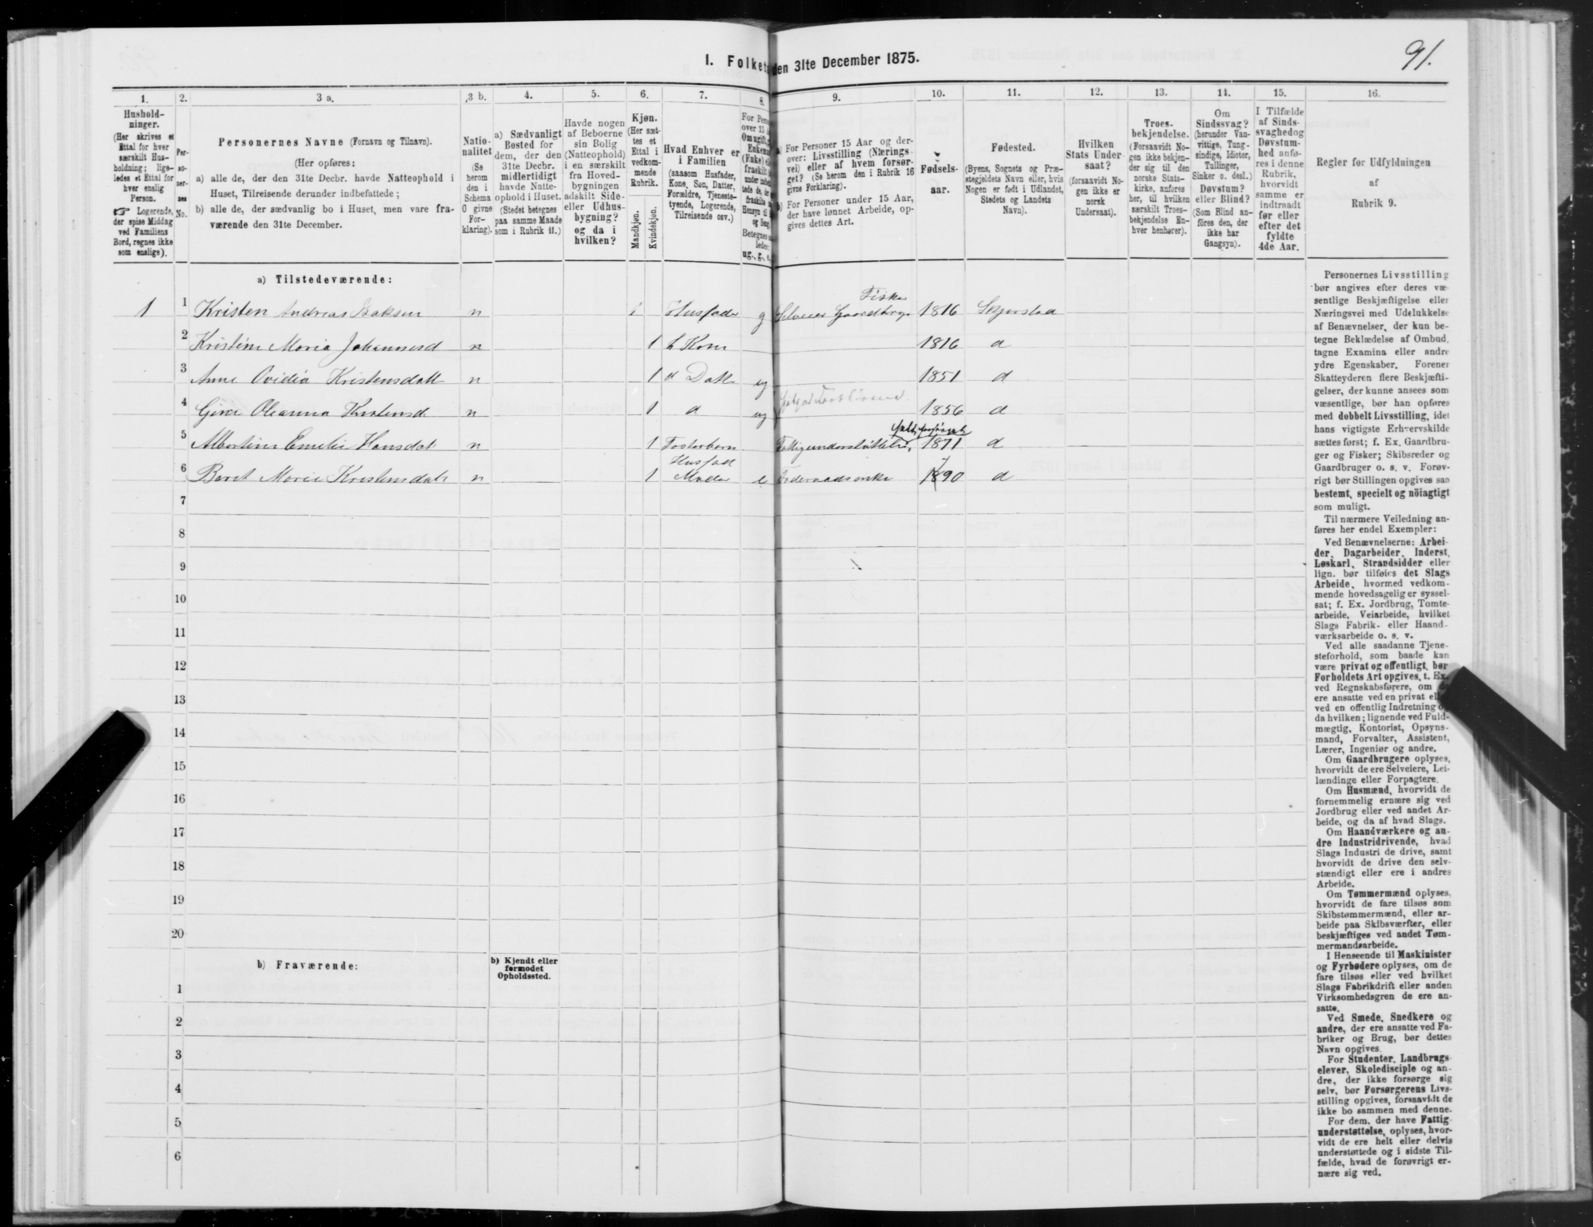 91.
I. Folket
en 31te December 1875.
1.
Hushold-
ninger.
(Her skrives et
Ettal for hver
særskilt Hus-
holdning; lige-
ledes et Ettal for
hver enslig
Person.
☞ Logerende,
der spise Middag
ved Familiens
Bord, regnes ikke
som enslige).
2.
Per-
so-
ner-
nes
No.
3 a.
Personernes Navne (Fornavn og Tilnavn).
(Her opføres:
a) alle de, der den 31te Decbr. havde Natteophold i
Huset, Tilreisende derunder indbefattede;
b) alle de, der sædvanlig bo i Huset, men vare fra-
værende den 31te December.
3 b.
Natio-
nalitet
(Se
herom
den i
Schema
0 givne
For-
klaring).
4.
a) Sædvanligt
Bosted for
dem, der den
31te Decbr.
midlertidigt
havde Natte-
ophold i Huset.
(Stedet betegnes
paa samme Maade
som i Rubrik 11.)
5.
Havde nogen
af Beboerne
sin Bolig
(Natteophold)
i en særskilt
fra Hoved-
bygningen
adskilt Side-
eller Udhus-
bygning?
og da i
hvilken?
6.
Kjøn.
(Her sæt-
tes et
Ettal i
vedkom-
mende
Rubrik.
Mandkjøn.
Kvindekjøn.
7.
Hvad Enhver er
i Familien
(saasom Husfader,
Kone, Søn, Datter,
Forældre, Tjeneste-
tyende, Logerende,
Tilreisende osv.)
8.
9.
a) For Personer 15 Aar og der-
over: Livsstilling (Nærings-
vei) eller af hvem forsør-
get? (Se herom den i Rubrik 16
givne Forklaring).
b) For Personer under 15 Aar,
der have lønnet Arbeide, op-
gives dettes Art.
10.
Fødsels-
aar.
11.
Fødested.
(Byens, Sognets og Præ-
stegjeldets Navn eller, hvis
Nogen er født i Udlandet,
Stedets og Landets
Navn).
12.
Hvilken
Stats Under
saat?
(forsaavidt No-
gen ikke er
norsk
Undersaat).
13.
Troes-
bekjendelse.
(Forsaavidt No-
gen ikke bekjen-
der sig til den
norske Stats-
kirke, anføres
her, til hvilken
særskilt Troes-
bekjendelse En-
hver henhører).
14.
Om
Sindssvag?
(herunder Van-
vittige, Tung-
sindige, Idioter,
Tullinger,
Sinker o. desl.)
Døvstum?
eller Blind?
(Som Blind an-
føres den, der
ikke har
Gangsyn).
15.
I Tilfælde
af Sinds-
svaghedog
Døvstum-
hed anfø-
res i denne
Rubrik,
hvorvidt
samme er
indtraadt
før eller
efter det
fyldte
4de Aar.
16.
Regler for Udfyldningen
af
Rubrik 9.
a) Tilstedeværende:
1 1 Kristen Andreas Isaksen n 1 Husfader g Selveier Gaardbruger Fisker 1816 Skjerstad
2 Kristine Maria Johannesd n 1 h Kone 1816 d
3 Anne Ovidia Kristensdatt n 1 d Datt ug 1851 d
4 Oleanna Kristensd n 1 d ug 1856 d
5 Albertine Emelie Hansdat n 1 Fosterbarn Fattigunderstøttelse, 1871 d
6 Beret Marie Kristensdatt n 1 Husfad Moder e Føderaadsenke 1790 d
7
8
9
10
11
12
13
14
15
16
17
18
19
20
b) Fraværende:
b) Kjendt eller
formodet
Opholdssted.
1
2
3
4
5
6
Personernes Livsstilling
bør angives efter deres væ-
sentlige Beskjæftigelse eller
Næringsvei med Udelukkelse
af Benævnelser, der kun be-
tegne Beklædelse af Ombud,
tagne Examina eller andre
ydre Egenskaber. Forener
Skatteyderen flere Beskjæfti-
gelser, der kunne ansees som
væsentlige, bør han opføres
med dobbelt Livsstilling, idet
hans vigtigste Erhvervskilde
sættes først; f. Ex. Gaardbru-
ger og Fisker; Skibsreder og
Gaardbruger o. s. v. Forøv-
rigt bør Stillingen opgives saa
bestemt, specielt og nöiagtigt
som muligt.
Til nærmere Veiledning an-
føres her endel Exempler:
Ved Benævnelserne: Arbei-
der, Dagarbeider, Inderst,
Løskarl, Strandsidder eller
lign. bør tilføies det Slags
Arbeide, hvormed vedkom-
mende hovedsagelig er syssel-
sat; f. Ex. Jordbrug, Tomte-
arbeide, Veiarbeide, hvilket
Slags Fabrik- eller Haand-
værksarbeide o. s. v.
Ved alle saadanne Tjene-
steforhold, som baade kan
være privat og offentligt, bør
Forholdets Art opgives, t. Ex.
ved Regnskabsførere, om
ere ansatte ved en privat
ved en offentlig Indretning
da hvilken; lignende ved Fuld-
mægtig, Kontorist, Opsyns-
mand, Forvalter, Assistent,
Lærer, Ingeniør og andre.
Om Gaardbrugere oplyses,
hvorvidt de ere Selveiere, Lei-
lændinge eller Forpagtere.
Om Husmænd, hvorvidt de
fornemmelig ernære sig ved
Jordbrug eller ved andet Ar-
beide, og da af hvad Slags.
Om Haandværkere og an-
dre Industridrivende, hvad
Slags Industri de drive, samt
hvorvidt de drive den selv-
stændigt eller ere i andres
Arbeide.
Om Tømmermænd oplyses,
hvorvidt de fare tilsøs som
Skibstømmermænd, eller ar-
beide paa Skibsværfter, eller
beskjæftiges ved andet Tøm-
mermandsarbeide.
I Henseende til Maskinister
og Fyrbødere oplyses, om de
fare tilsøs eller ved hvilket
Slags Fabrikdrift eller anden
Virksomhedsgren de ere an-
satte.
Ved Smede, Snedkere og
andre, der ere ansatte ved Fa-
briker og Brug, bør dettes
Navn opgives.
For Studenter, Landbrugs-
elever, Skoledisciple og an-
dre, der ikke forsørge sig
selv, bør Forsørgerens Livs-
stilling opgives, forsaavidt de
ikke bo sammen med denne.
For dem, der have Fattig-
understøttelse, oplyses, hvor-
vidt de ere helt eller delvis
understøttede og i sidste Til-
fælde, hvad de forøvrigt er-
nære sig ved.